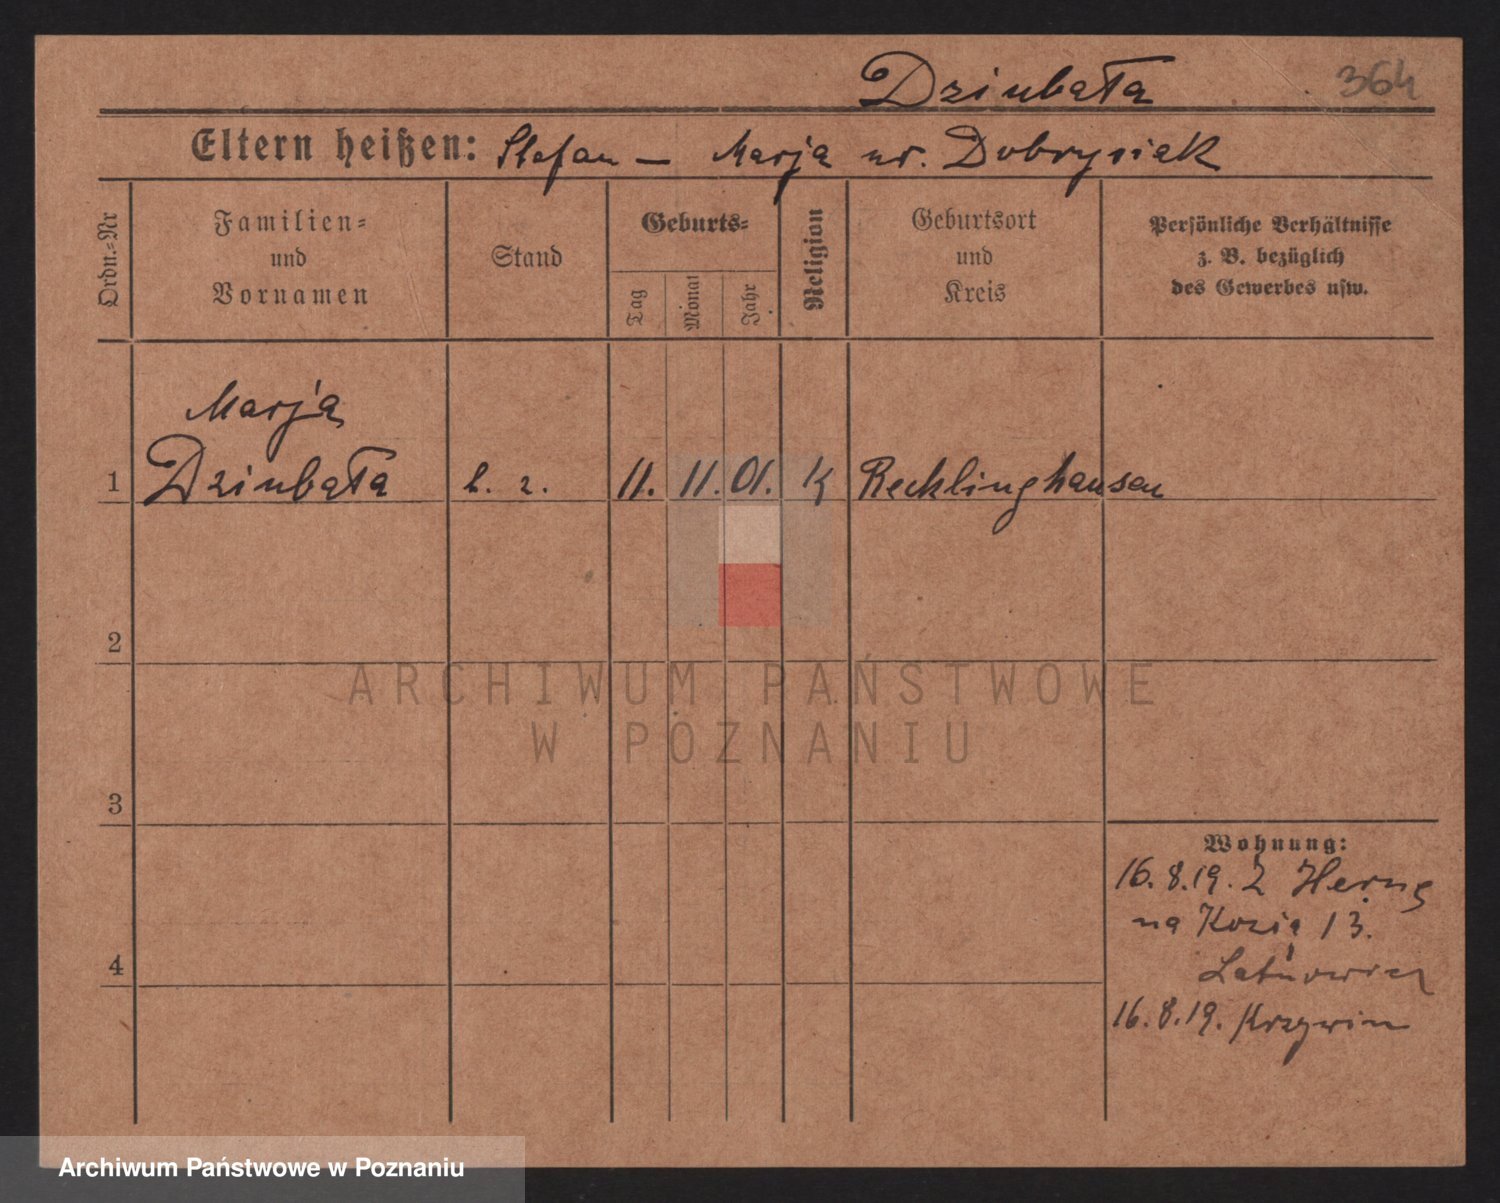 Dziubała
364
Eltern heißen: Stefan — Marja ur. Dobrysiak
Ordn.=Nr
Familien=
und
Vornamen
Stand
Geburts=
Tag
Monat
Jahr
Religion
Geburtsort
und
Kreis
Persönliche Verhältnisse
z. B. bezüglich
des Gewerbes usw.
Marja
1 Dziubała 11. 11. 01. K Recklinghausen
2
3
4
Wohnung:
16.8.19. Z Herne
na Kozią 13.
16.8.19. Krzywin
ARCHIWUM PAŃSTWOWE
W POZNANIU
Archiwum Państwowe w Poznaniu